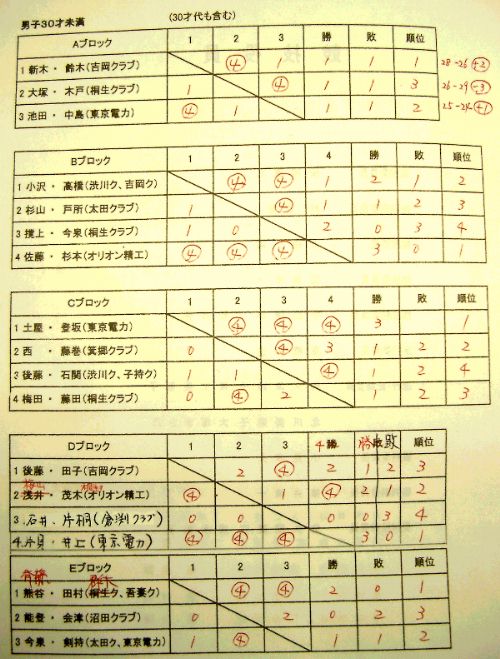 男子30才未満 (30才代も含む)
Aブロック 1 2 3 勝 敗 順位
1 新木・鈴木(吉岡クラブ) ④ 1 1 1 1 28-26 +2
2 大塚・木戸(桐生クラブ) 1 ④ 1 1 3 26-29 -3
3 池田・中島(東京電力) ④ 1 1 1 2 25-24 +1
Bブロック 1 2 3 4 勝 敗 順位
1 小沢・高橋(渋川ク、吉岡ク) ④ ④ 1 2 1 2
2 杉山・戸所(太田クラブ) 1 ④ 1 1 2 3
3 撹上・今泉(桐生クラブ) 1 0 2 0 3 4
4 佐藤・杉本(オリオン精工) ④ ④ ④ 3 0 1
Cブロック 1 2 3 4 勝 敗 順位
1 土屋・登坂(東京電力) ④ ④ ④ 3 1
2 西・藤巻(箕郷クラブ) 0 ④ 3 1 2 2
3 後藤・石関(渋川ク、子持ク) 1 1 ④ 1 2 4
4 梅田・藤田(桐生クラブ) 0 ④ 2 1 2 3
Dブロック 1 2 3 4 勝 敗 順位
1 後藤・田子(吉岡クラブ) 2 ④ 2 1 2 3
2 浅井・茂木(オリオン精工) ④ 1 ④ 2 1 2
3.石井、片桐(倉渕クラブ) 0 0 0 0 3 4
井上(東京電力) ④ ④ ④ 3 0 1
Eブロック 1 2 3 勝 敗 順位
1 熊谷・田村(桐生ク、吾妻ク) ④ ④ 2 0 1
2 能登・会津(沼田クラブ) 0 2 0 2 3
3 今泉・剣持(太田ク、東京電力) 1 ④ 1 1 2